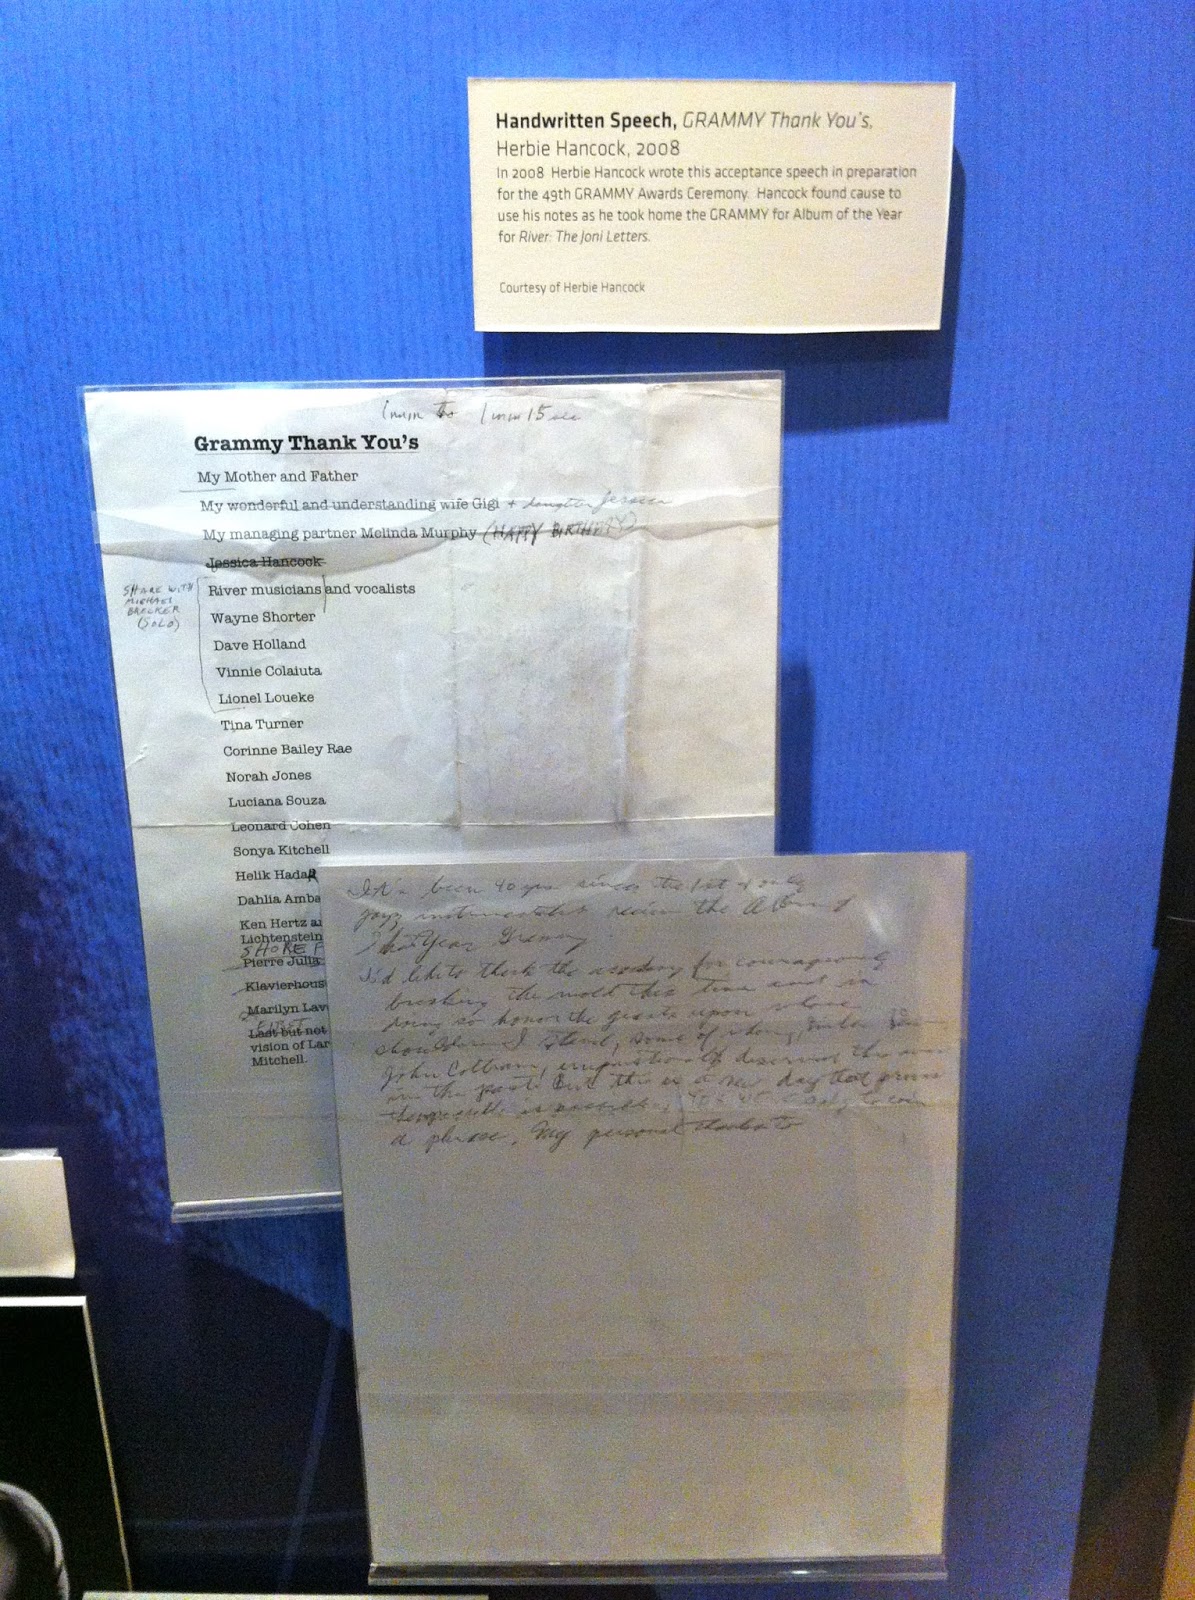 Handwritten Speech, GRAMMY Thank You's,
Herbie Hancock, 2008
In 2008 Herbie Hancock wrote this acceptance speech in preparation
for the 49th GRAMMY Awards Ceremony. Hancock found cause to
use his notes as he took home the GRAMMY for Album of the Year
for River: The Joni Letters.
Courtesy of Herbie Hancock
1 min to 1 min 15 sec
Grammy Thank You's
My Mother and Father
My wonderful and understanding wife Gigi + daughter Jessica
My managing partner Melinda Murphy (HAPPY BIRTHDAY)
Jessica Hancock
SHARE WITH
MICHAEL
BRECKER
(SOLO)
River musicians and vocalists
Wayne Shorter
Dave Holland
Vinnie Colaiuta
Lionel Loueke
Tina Turner
Corinne Bailey Rae
Norah Jones
Luciana Souza
Leonard Cohen
Sonya Kitchell
Helik Hadar
Dahlia Amba
Ken Hertz a
Lichtenstein
SHORE F
Pierre Julia
Klavierhous
Marilyn Lav
FIRST
Last but not
vision of Lar
Mitchell.
It's been 40 yrs since the 1st & only
jazz instrumentalist receive the Album of
The Year Grammy
I'd like to thank the academy for courageously
breaking the mold this time and in
doing so honor the giants upon whose
shoulders I stand, some of whom, like
John Coltrane, unquestionably deserving the award
in the past. But this is a new day that proves
the impossible is possible, to coin
a phrase. My personal thanks to